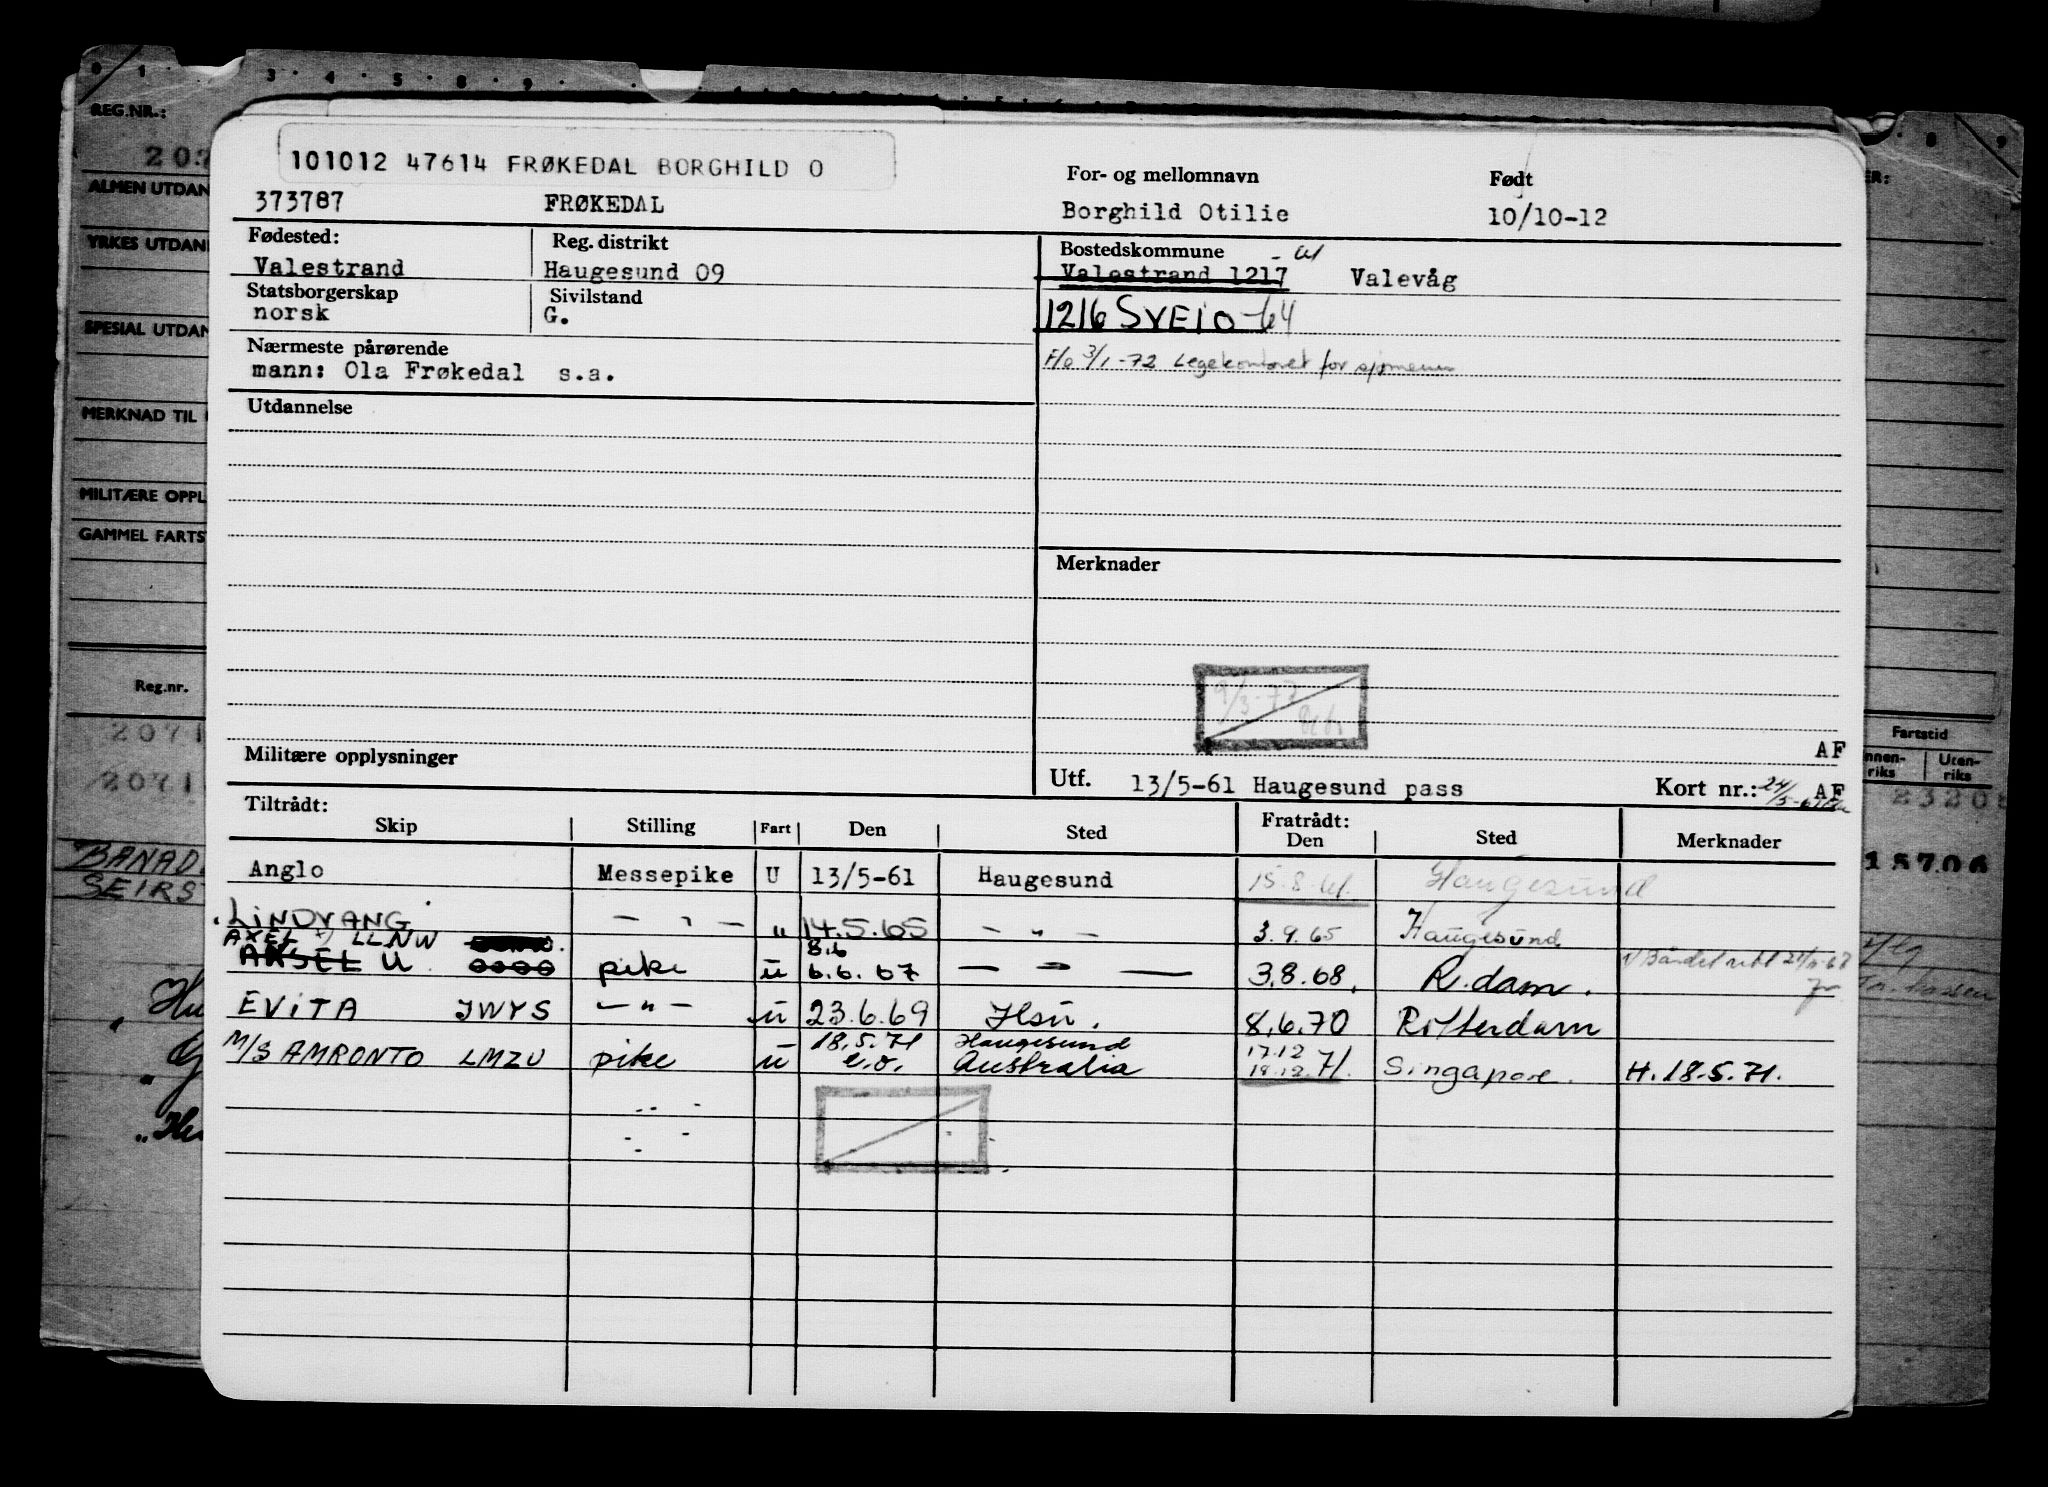 0 1 . 3 . 4 . 5 . 8 . 9 .
REG.NR.:
101012 47614 FRØKEDAL BORGHILD O
For- og mellomnavn
Født
373787 FRØKEDAL Borghild Otilie 10/10-12
ALMEN UTDAN
YRKES UTDAN
SPESIAL UTDAN
MERKNAD TIL
MILITÆRE OPPL
GAMMEL FARTS
Reg.nr.
2071
BANAD
SEIRS
Fødested: Reg. distrikt Bostedskommune
Valestrand Haugesund 09 Valestrand 1217 Valevåg
Statsborgerskap Sivilstand
norsk G. 1216 SVEIO -64
Nærmeste pårørende
mann: Ola Frøkedal s.a. F/o 3/1-72 Legekontoret for sjømenn
Utdannelse
Merknader
9/3-77
AF
Militære opplysninger
Utf. 13/5-61 Haugesund pass Kort nr.: AF
Tiltrådt: Fratrådt:
Skip Stilling Fart Den Sted Den Sted Merknader
Anglo Messepike U 13/5-61 Haugesund 15.8.61. Haugesund
LINDVANG — " — " 14.5.65 — " — 3.9.65 Haugesund
AXEL LLNW 8.6
AKSEL U. pike u 6.6.67 — " — 3.8.68. R.dam.
EVITA JWYS — " — u 23.6.69 Hsu. 8.6.70 Rotterdam
18.5.71 Haugesund 17.12
M/S AMRONTO LMZU pike u e.o. Australia 18.12.71. Singapore. H. 18.5.71.
Fartstid
nnen-riks Uten-riks
18706